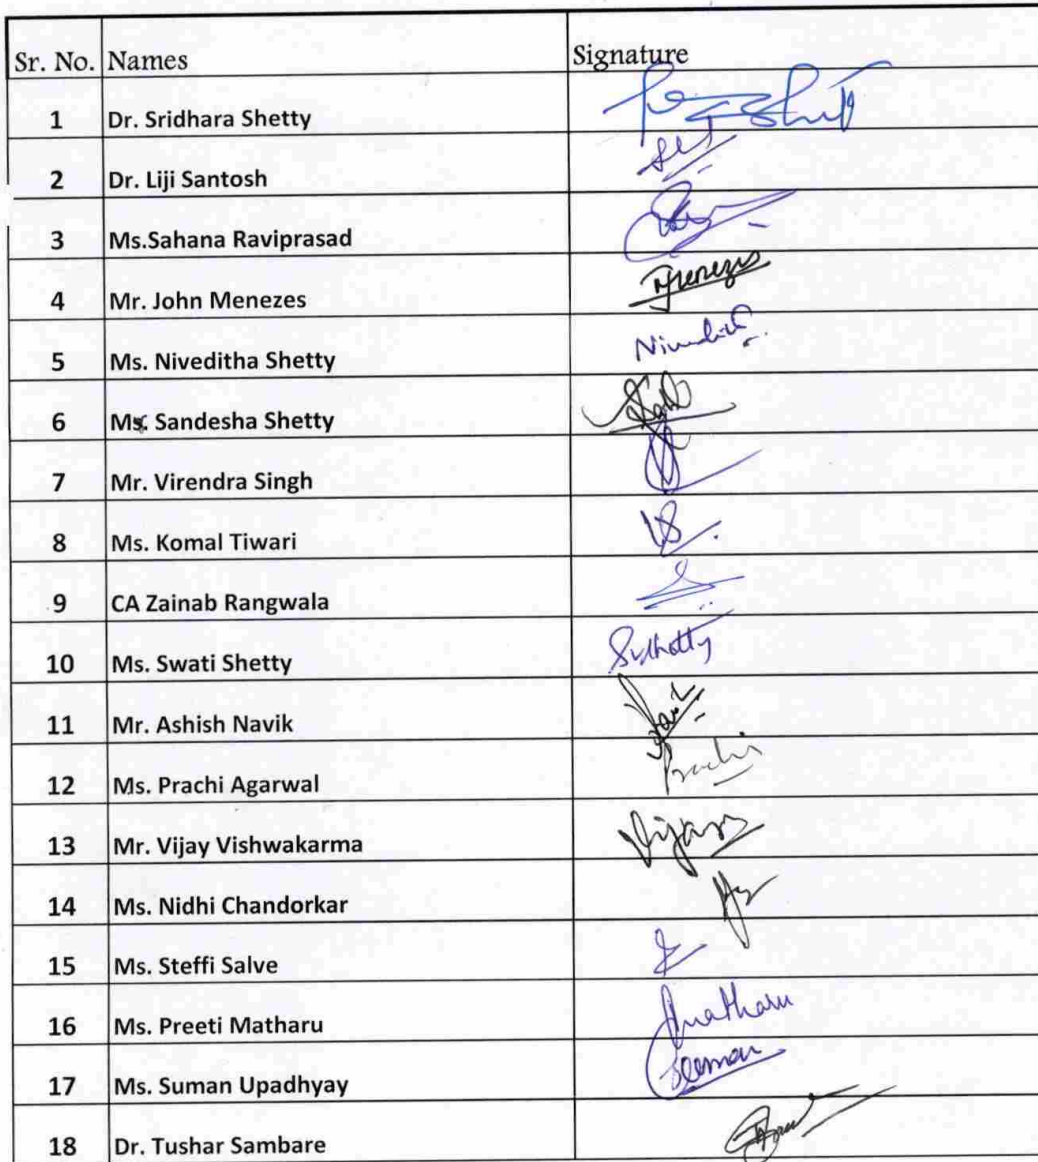 Sr. No. Names Signature
1 Dr. Sridhara Shetty
2 Dr. Liji Santosh
3 Ms.Sahana Raviprasad
4 Mr. John Menezes Menezes
5 Ms. Niveditha Shetty
6 Ms. Sandesha Shetty
7 Mr. Virendra Singh
8 Ms. Komal Tiwari
9 CA Zainab Rangwala
10 Ms. Swati Shetty
11 Mr. Ashish Navik
12 Ms. Prachi Agarwal Prachi
13 Mr. Vijay Vishwakarma Vijay
14 Ms. Nidhi Chandorkar
15 Ms. Steffi Salve
16 Ms. Preeti Matharu Matharu
17 Ms. Suman Upadhyay Suman
18 Dr. Tushar Sambare